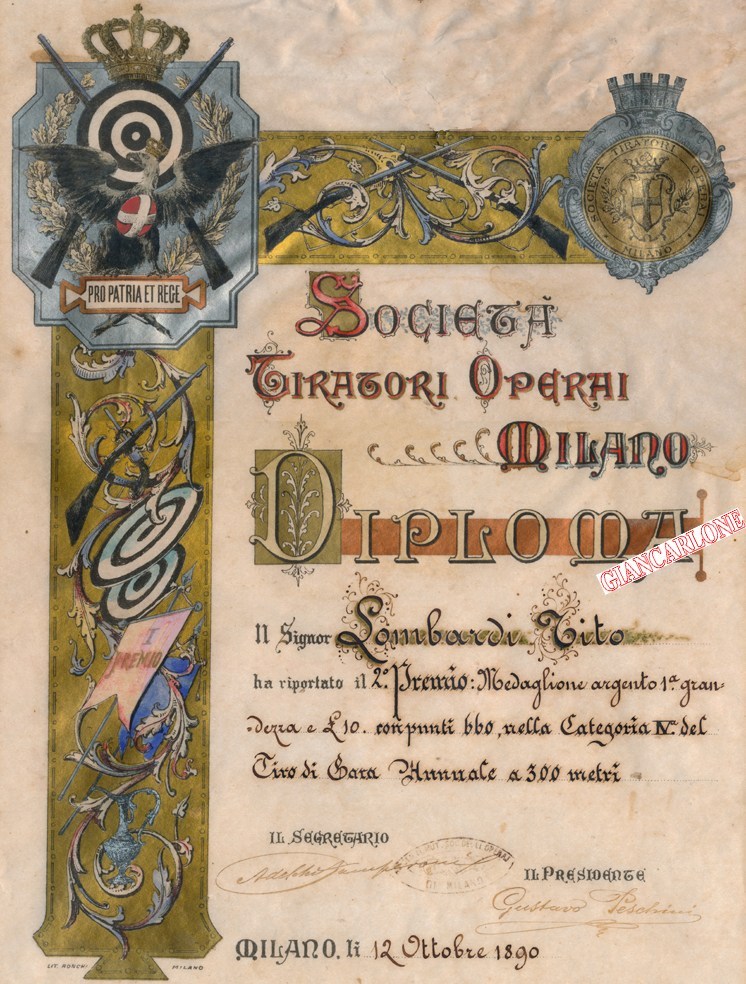 PRO PATRIA ET REGE
SOCIETÀ TIRATORI OPERAI
MILANO
SOCIETÀ
TIRATORI OPERAI
MILANO
DIPLOMA
GIANCARLONE
Il Signor Lombardi Tito
ha riportato il 2º Premio: Medaglione argento 1ª gran-
dezza e £ 10. con punti 660, nella Categoria IVª del
Tiro di Gara Annuale a 300 metri
I
PREMIO
IL SEGRETARIO
IL PRESIDENTE
Gustavo Peschini
MILANO, li 12 Ottobre 1890
LIT. RONCHI MILANO